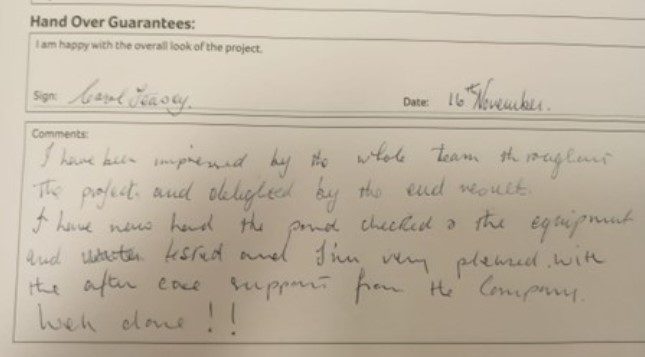 Hand Over Guarantees:
I am happy with the overall look of the project.
Sign: Carol Teasey. Date: 16th November.
Comments:
I have been impressed by the whole team throughout
the project and delighted by the end result.
I have now had the pond checked & the equipment
and water tested and I'm very pleased with
the after care support from the Company.
Well done!!